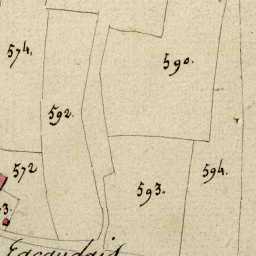 574.
590.
592.
572
594.
593.
3.